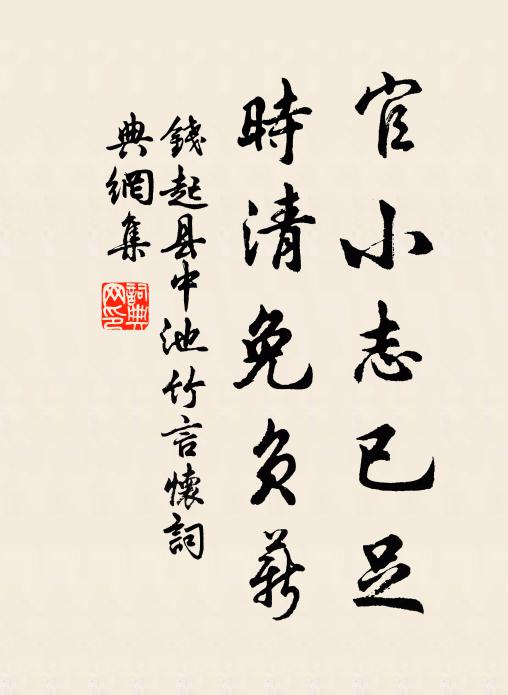 官小志已足
時清免負薪
錢起县中池竹言懷詞
典網集
詞典網印